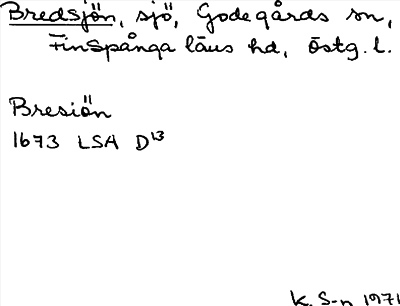 Bredsjön, sjö, Godegårds sn,
Finspånga läns hd, Östg. l.
Bresiön
1673 LSA D13
K. S-n 1971